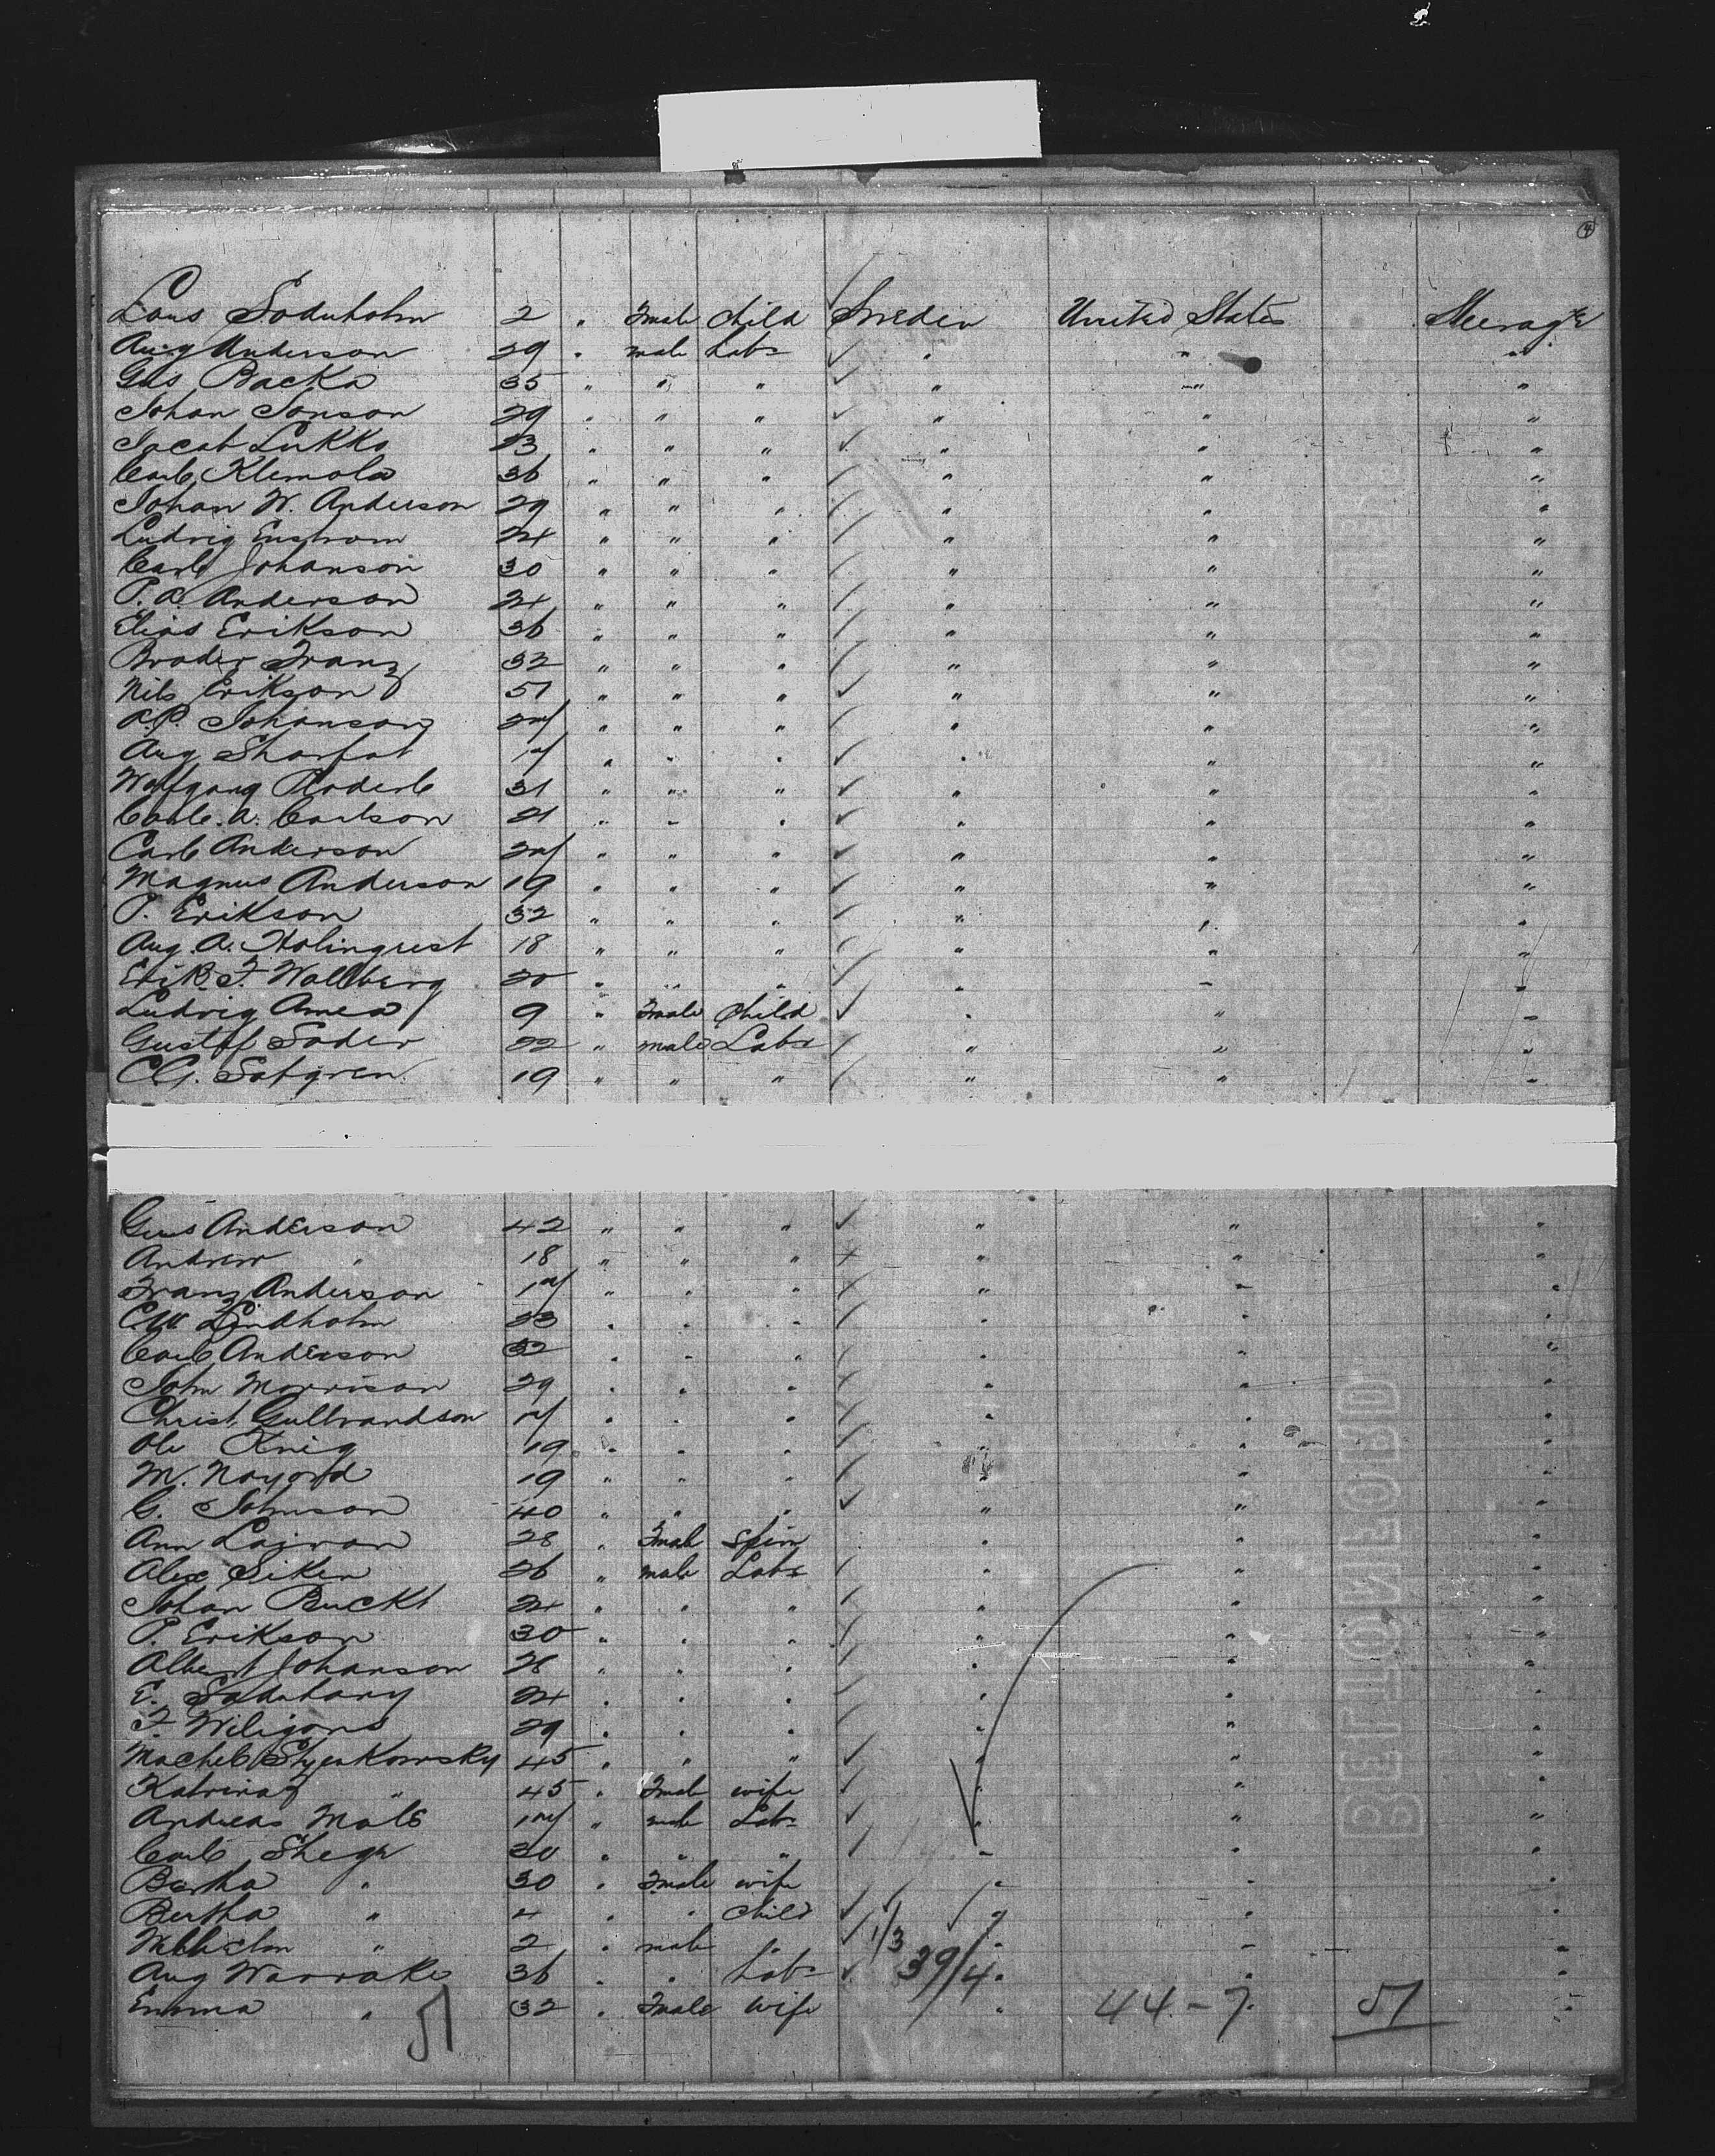 4
Lous Soderholm 2 " Fmale Child Sweden United States Steerage
Aug Anderson 29 " male Labr " " "
Gus Backa 35 " " " " " "
Johan Jonson 29 " " " " " "
Jacob Lukko 23 " " " " " "
Carl Klemola 36 " " " " " "
Johan W. Anderson 29 " " " " " "
Ludvig Enstrom 24 " " " " " "
Carl Johanson 30 " " " " " "
P. A. Anderson 24 " " " " " "
Elias Erikson 36 " " " " " "
Broder Franz 32 " " " " " "
Nils Erikson 51 " " " " " "
A. P. Johanson 27 " " " " " "
Aug 17 " " " " " "
Wolfgang 31 " " " " " "
Carl. A. Carlson 21 " " " " " "
Carl Anderson 27 " " " " " "
Magnus Anderson 19 " " " " " "
P. Erikson 32 " " " " " "
Aug. A. Holmqrest 18 " " " " " "
Erik. F. Wallberg 20 " " " " " "
Ludvig Amea 9 " Fmale Child " " "
Gustaf Soder 22 " male Labr " " "
C G. Sat gren 19 " " " " " "
Gus Anderson 42 " " " " " "
Andrew " 18 " " " " " "
Franz Anderson 17 " " " " " "
C. W. Lindholm 23 " " " " " "
Carl Anderson 32 " " " " " "
John Morrison 29 " " " " " "
Christ. Gulbrandson 17 " " " " " "
Ole Knig 19 " " " " " "
M. 19 " " " " " "
G. Johnson 40 " " " " " "
Ann 28 " Fmale Spin " " "
Alex Siken 26 " male Labr " " "
Johan Buckt 24 " " " " " "
P. Erikson 30 " " " " " "
Albert Johanson 28 " " " " " "
E. 24 " " " " " "
F. 29 " " " " " "
45 " " " " " "
Katrina " 45 " Fmale wife " " "
Andreas Mals 17 " male Labr " " "
Carl 30 " " " " " "
Bertha " 30 " Fmale wife " " "
Bertha " 4 " " Child " " "
" 2 " male " 1/3 " " "
Aug Warrake 36 " " Labr 39/4 " " "
Emma " 32 " Fmale Wife " 44-7 51 "
51